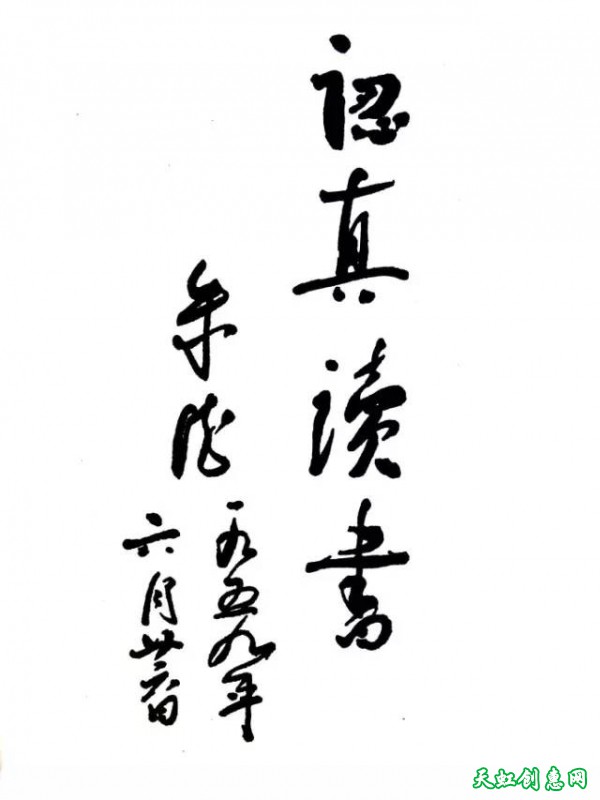 認真讀書
朱德
一九五九年
六月廿六日
天虹创惠网